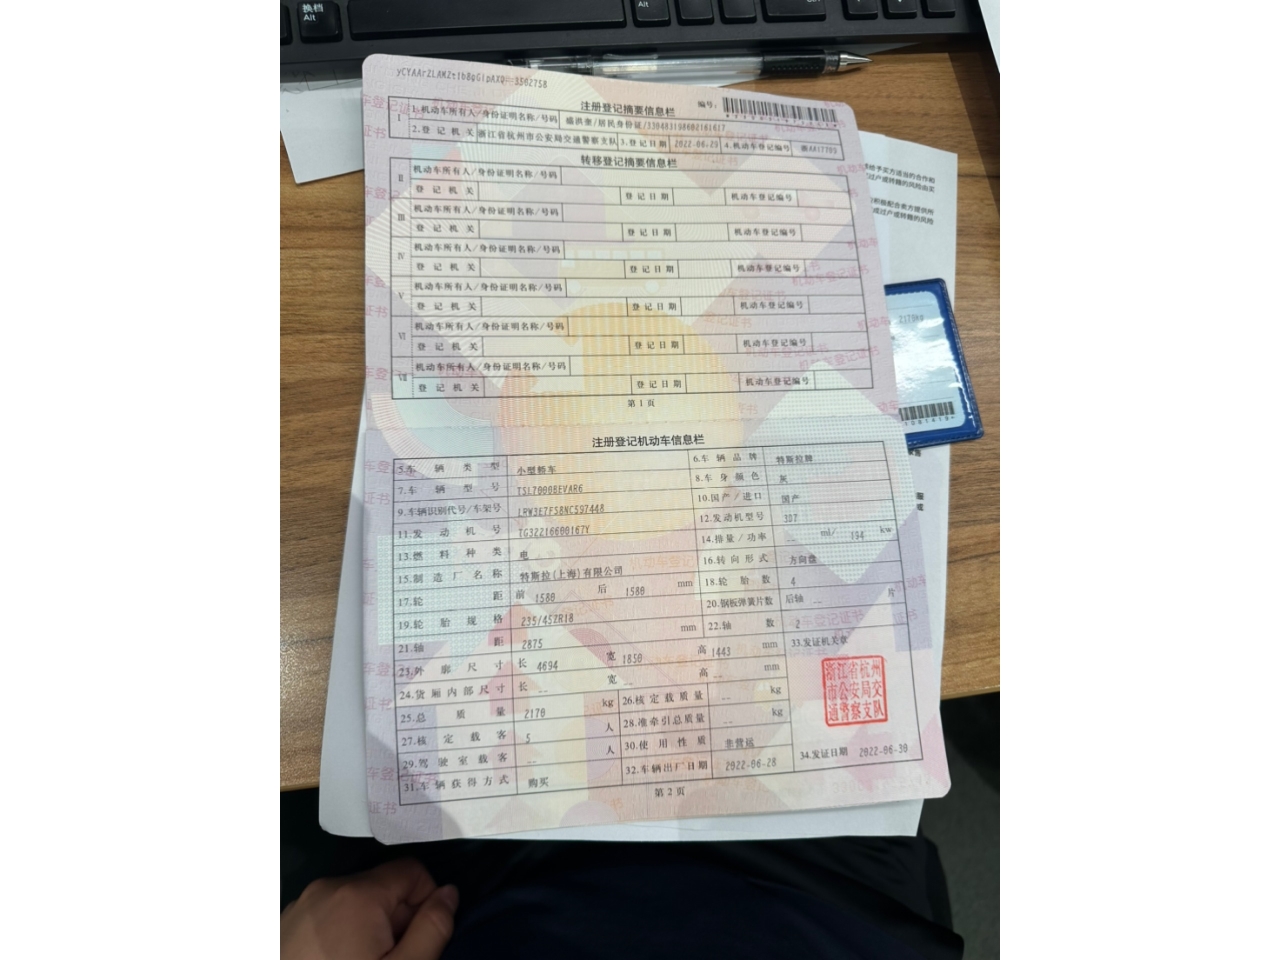 换档
Alt
Alt
Ctrl
yCYAArZLAM2t1b8gGlpAXQ==3502758
编号:
注册登记摘要信息栏
I 1.机动车所有人/身份证明名称/号码 /居民身份证/330483198602161617
2.登记机关 浙江省杭州市公安局交通警察支队 3.登记日期 2022-06-29 4.机动车登记编号
转移登记摘要信息栏
II 机动车所有人/身份证明名称/号码
登记机关 登记日期 机动车登记编号
III 机动车所有人/身份证明名称/号码
登记机关 登记日期 机动车登记编号
IV 机动车所有人/身份证明名称/号码
登记机关 登记日期 机动车登记编号
V 机动车所有人/身份证明名称/号码
登记机关 登记日期 机动车登记编号
VI 机动车所有人/身份证明名称/号码
登记机关 登记日期 机动车登记编号
VII 机动车所有人/身份证明名称/号码
登记机关 登记日期 机动车登记编号
第1页
注册登记机动车信息栏
5.车辆类型 小型轿车 6.车辆品牌 特斯拉牌
7.车辆型号 TSL7000BEVAR6 8.车身颜色 灰
9.车辆识别代号/车架号 LRW3E7FS8NC597448 10.国产/进口 国产
11.发动机号 TG32216600167Y 12.发动机型号 3D7
13.燃料种类 电 14.排量/功率 -- ml/ 194 kw
15.制造厂名称 特斯拉(上海)有限公司 16.转向形式 方向盘
17.轮距 前 1580 后 1580 mm 18.轮胎数 4
19.轮胎规格 235/45ZR18 20.钢板弹簧片数 后轴 -- 片
21.轴距 2875 mm 22.轴数 2
23.外廓尺寸 长 4694 宽 1850 高 1443 mm 33.发证机关章
24.货厢内部尺寸 长 -- 宽 -- 高 -- mm
25.总质量 2170 kg 26.核定载质量 -- kg
27.核定载客 5 人 28.准牵引总质量 -- kg
29.驾驶室载客 -- 人 30.使用性质 非营运
31.车辆获得方式 购买 32.车辆出厂日期 2022-06-28 34.发证日期 2022-06-30
浙江省杭州
市公安局交
通警察支队
第2页
给予买方适当的合作和
过户或转籍的风险由买
积极配合卖方提供所
成过户或转籍的风险